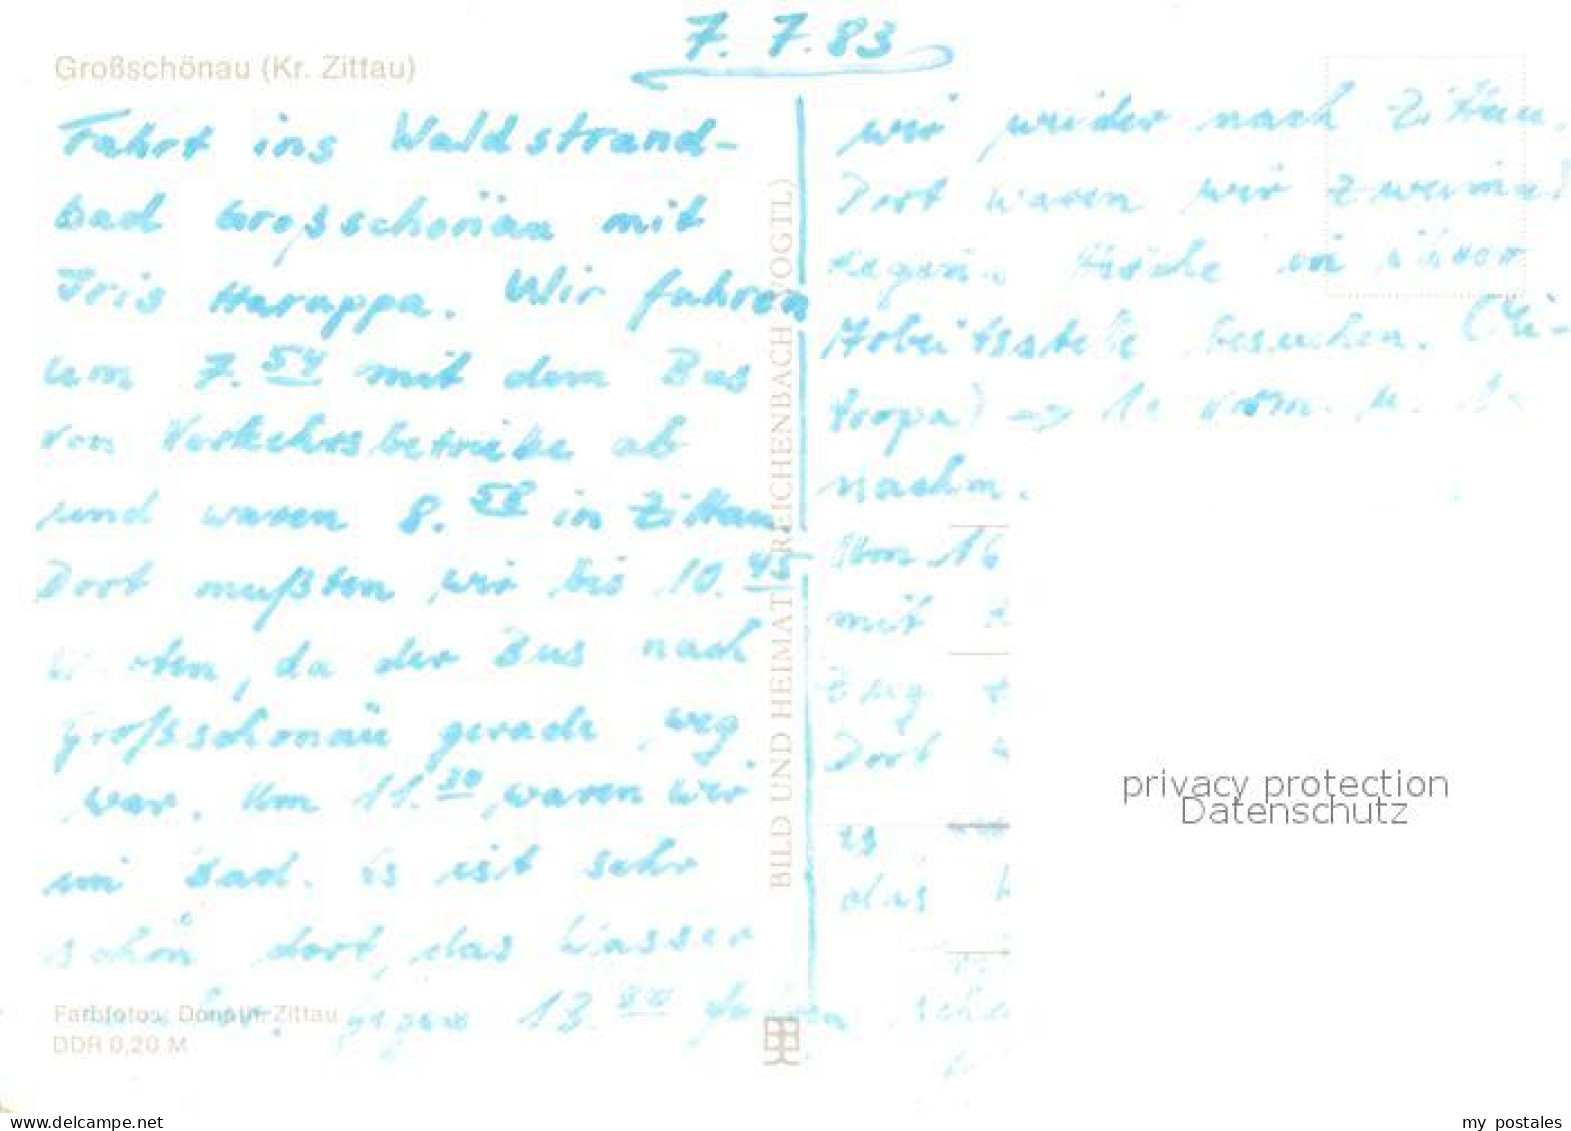 7. 7. 83
Großschönau (Kr. Zittau)
Fahrt ins Waldstrand-
bad Großschönau mit
Iris Haruppa. Wir fuhren
um 7.54 mit dem Bus
von Verkehrsbetriebe ab
und waren 8.58 in Zittau.
Dort mußten wir bis 10.45
da der Bus nach
Großschönau gerade weg
war. Um 11.30 waren wir
im Bad. Es ist sehr
schön dort, das Wasser
gegen 13.00
Farbfotos: Donath, Zittau
DDR 0,20 M
BILD UND HEIMAT REICHENBACH (VOGTL)
wir wieder nach Zittau.
Dort waren wir zweimal
in ihrer
Arbeitsstelle besuchen. (Mi-
tropa) → 1x vorm. u. 1x
nachm.
Um 16
mit
Zug
Dort
es
das
privacy protection
Datenschutz
oneofakindstore
my postales